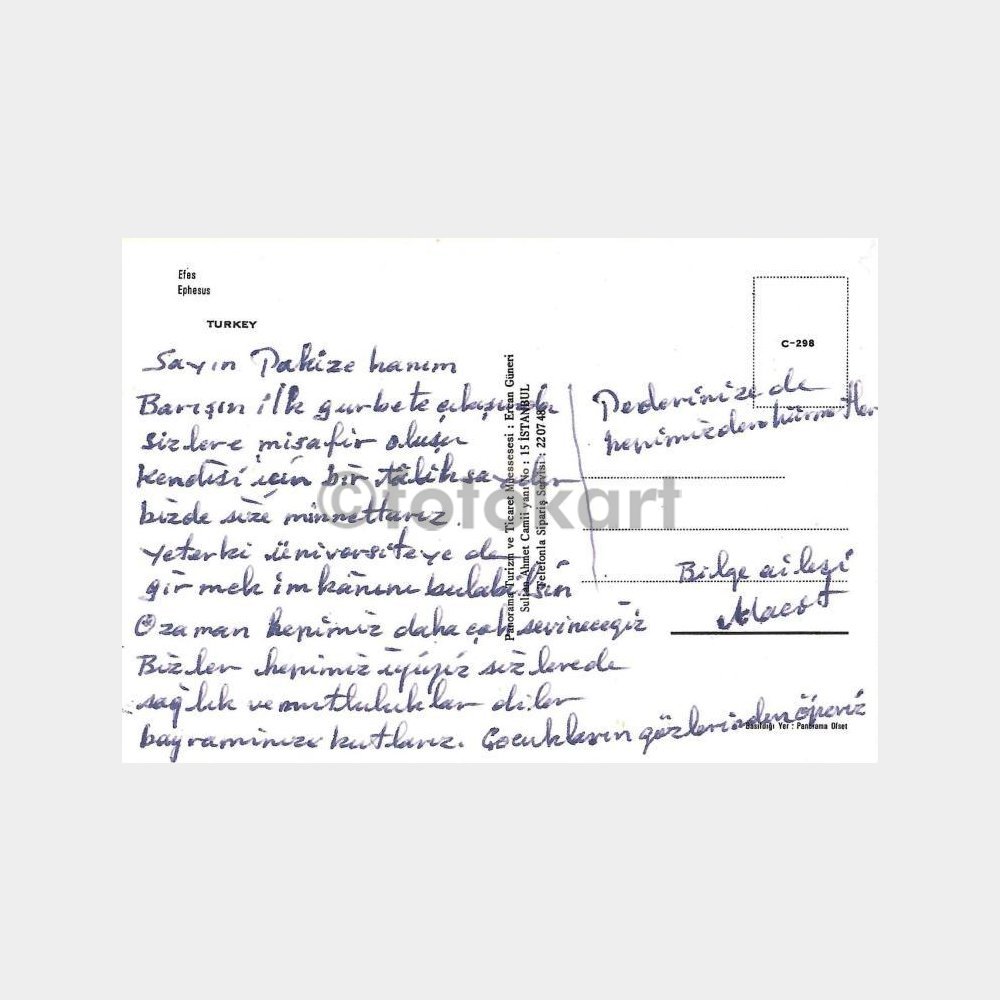 Efes
Ephesus
TURKEY
C-298
Sayın Pakize hanım
Barışın ilk gurbete çıkışında
sizlere misafir oluşu
kendisi için bir tâlih sayılır
bizde size minnettarız.
yeterki üniversiteye de
girmek imkânını bulabilsin
O zaman hepimiz daha çok sevineceğiz
Bizler hepimiz iyiyiz sizlerede
sağlık ve mutluluklar diler
bayramınızı kutlarız. Çocukların gözlerinden öperiz
Pederinize de
hepimizden hürmetler
Bilge ailesi
Panorama Turizm ve Ticaret Müessesesi : Ercan Güneri
Sultan Ahmet Camii yanı No : 15 İSTANBUL
Telefonla Sipariş Servisi : 22 07 48
Basıldığı Yer : Panorama Ofset
©fotokart